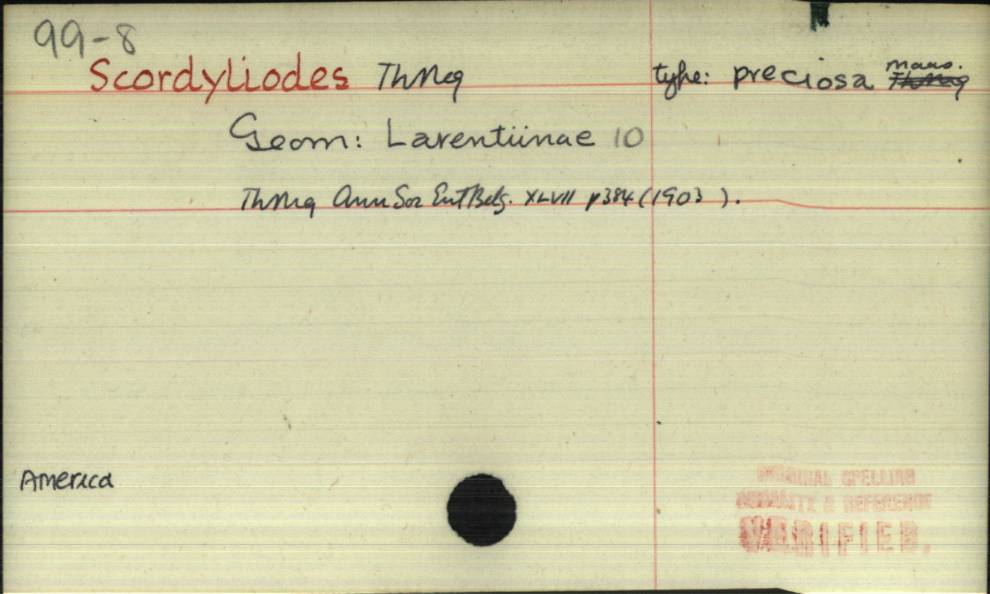 99-8
Scordyliodes ThMeg type: preciosa maas. ThMeg
Geom: Larentiinae 10
ThMeg Ann Soc Ent Belg. XLVII p384 (1903 ).
America
ORIGINAL SPELLING
& REFERENCE
VERIFIED.